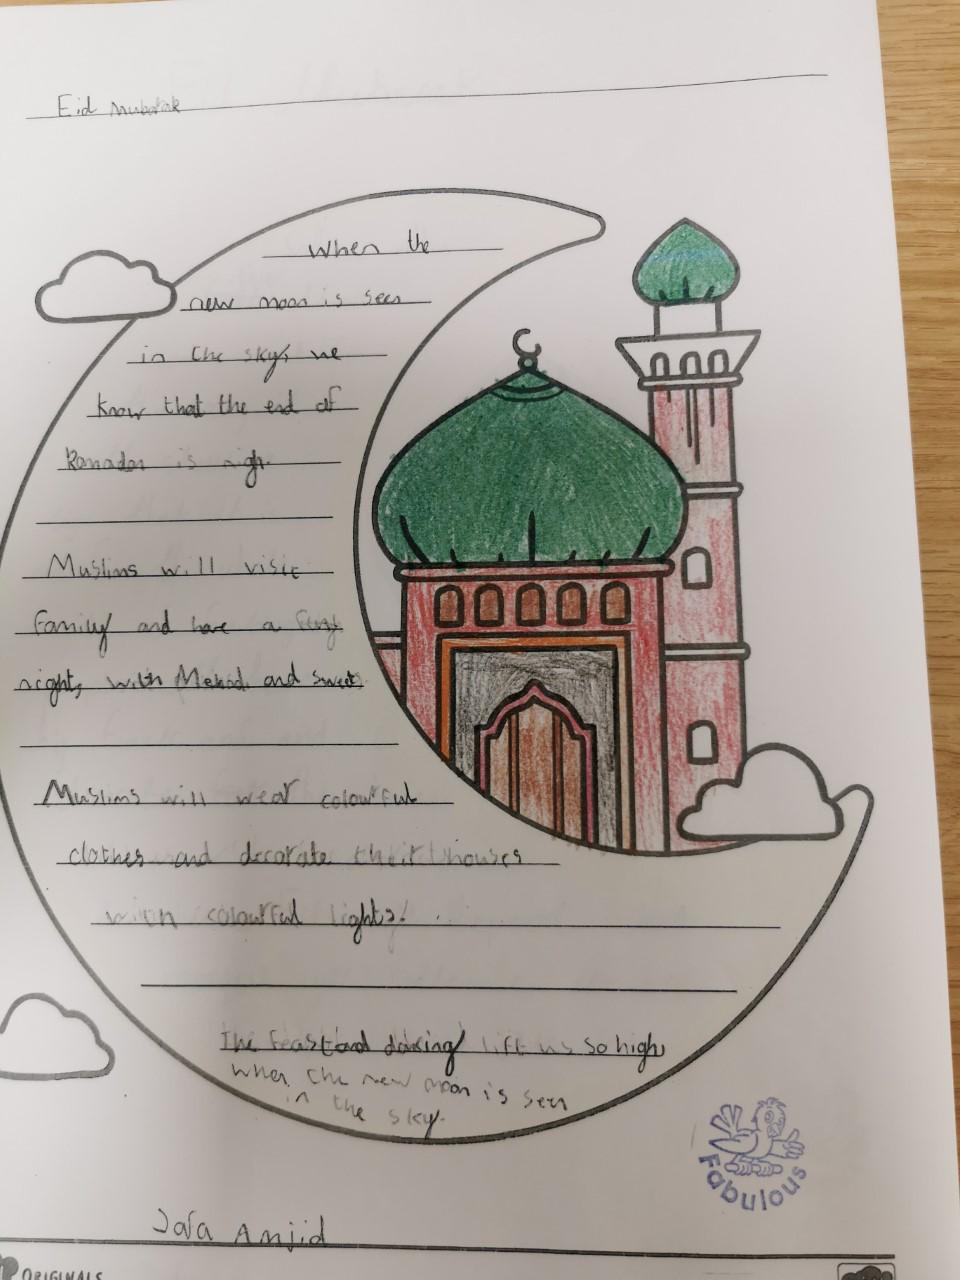 Eid Mubarak
When the
new moon is seen
in the sky, we
know that the end of
Ramadan is nigh.
Muslims will visit
family and have a
night, with Mehndi and sweets.
Muslims will wear colourful
clothes and decorate their houses
with colourful lights.
The feast and dancing lift us so high
when the new moon is seen
in the sky.
Fabulous
Amjid
ORIGINALS